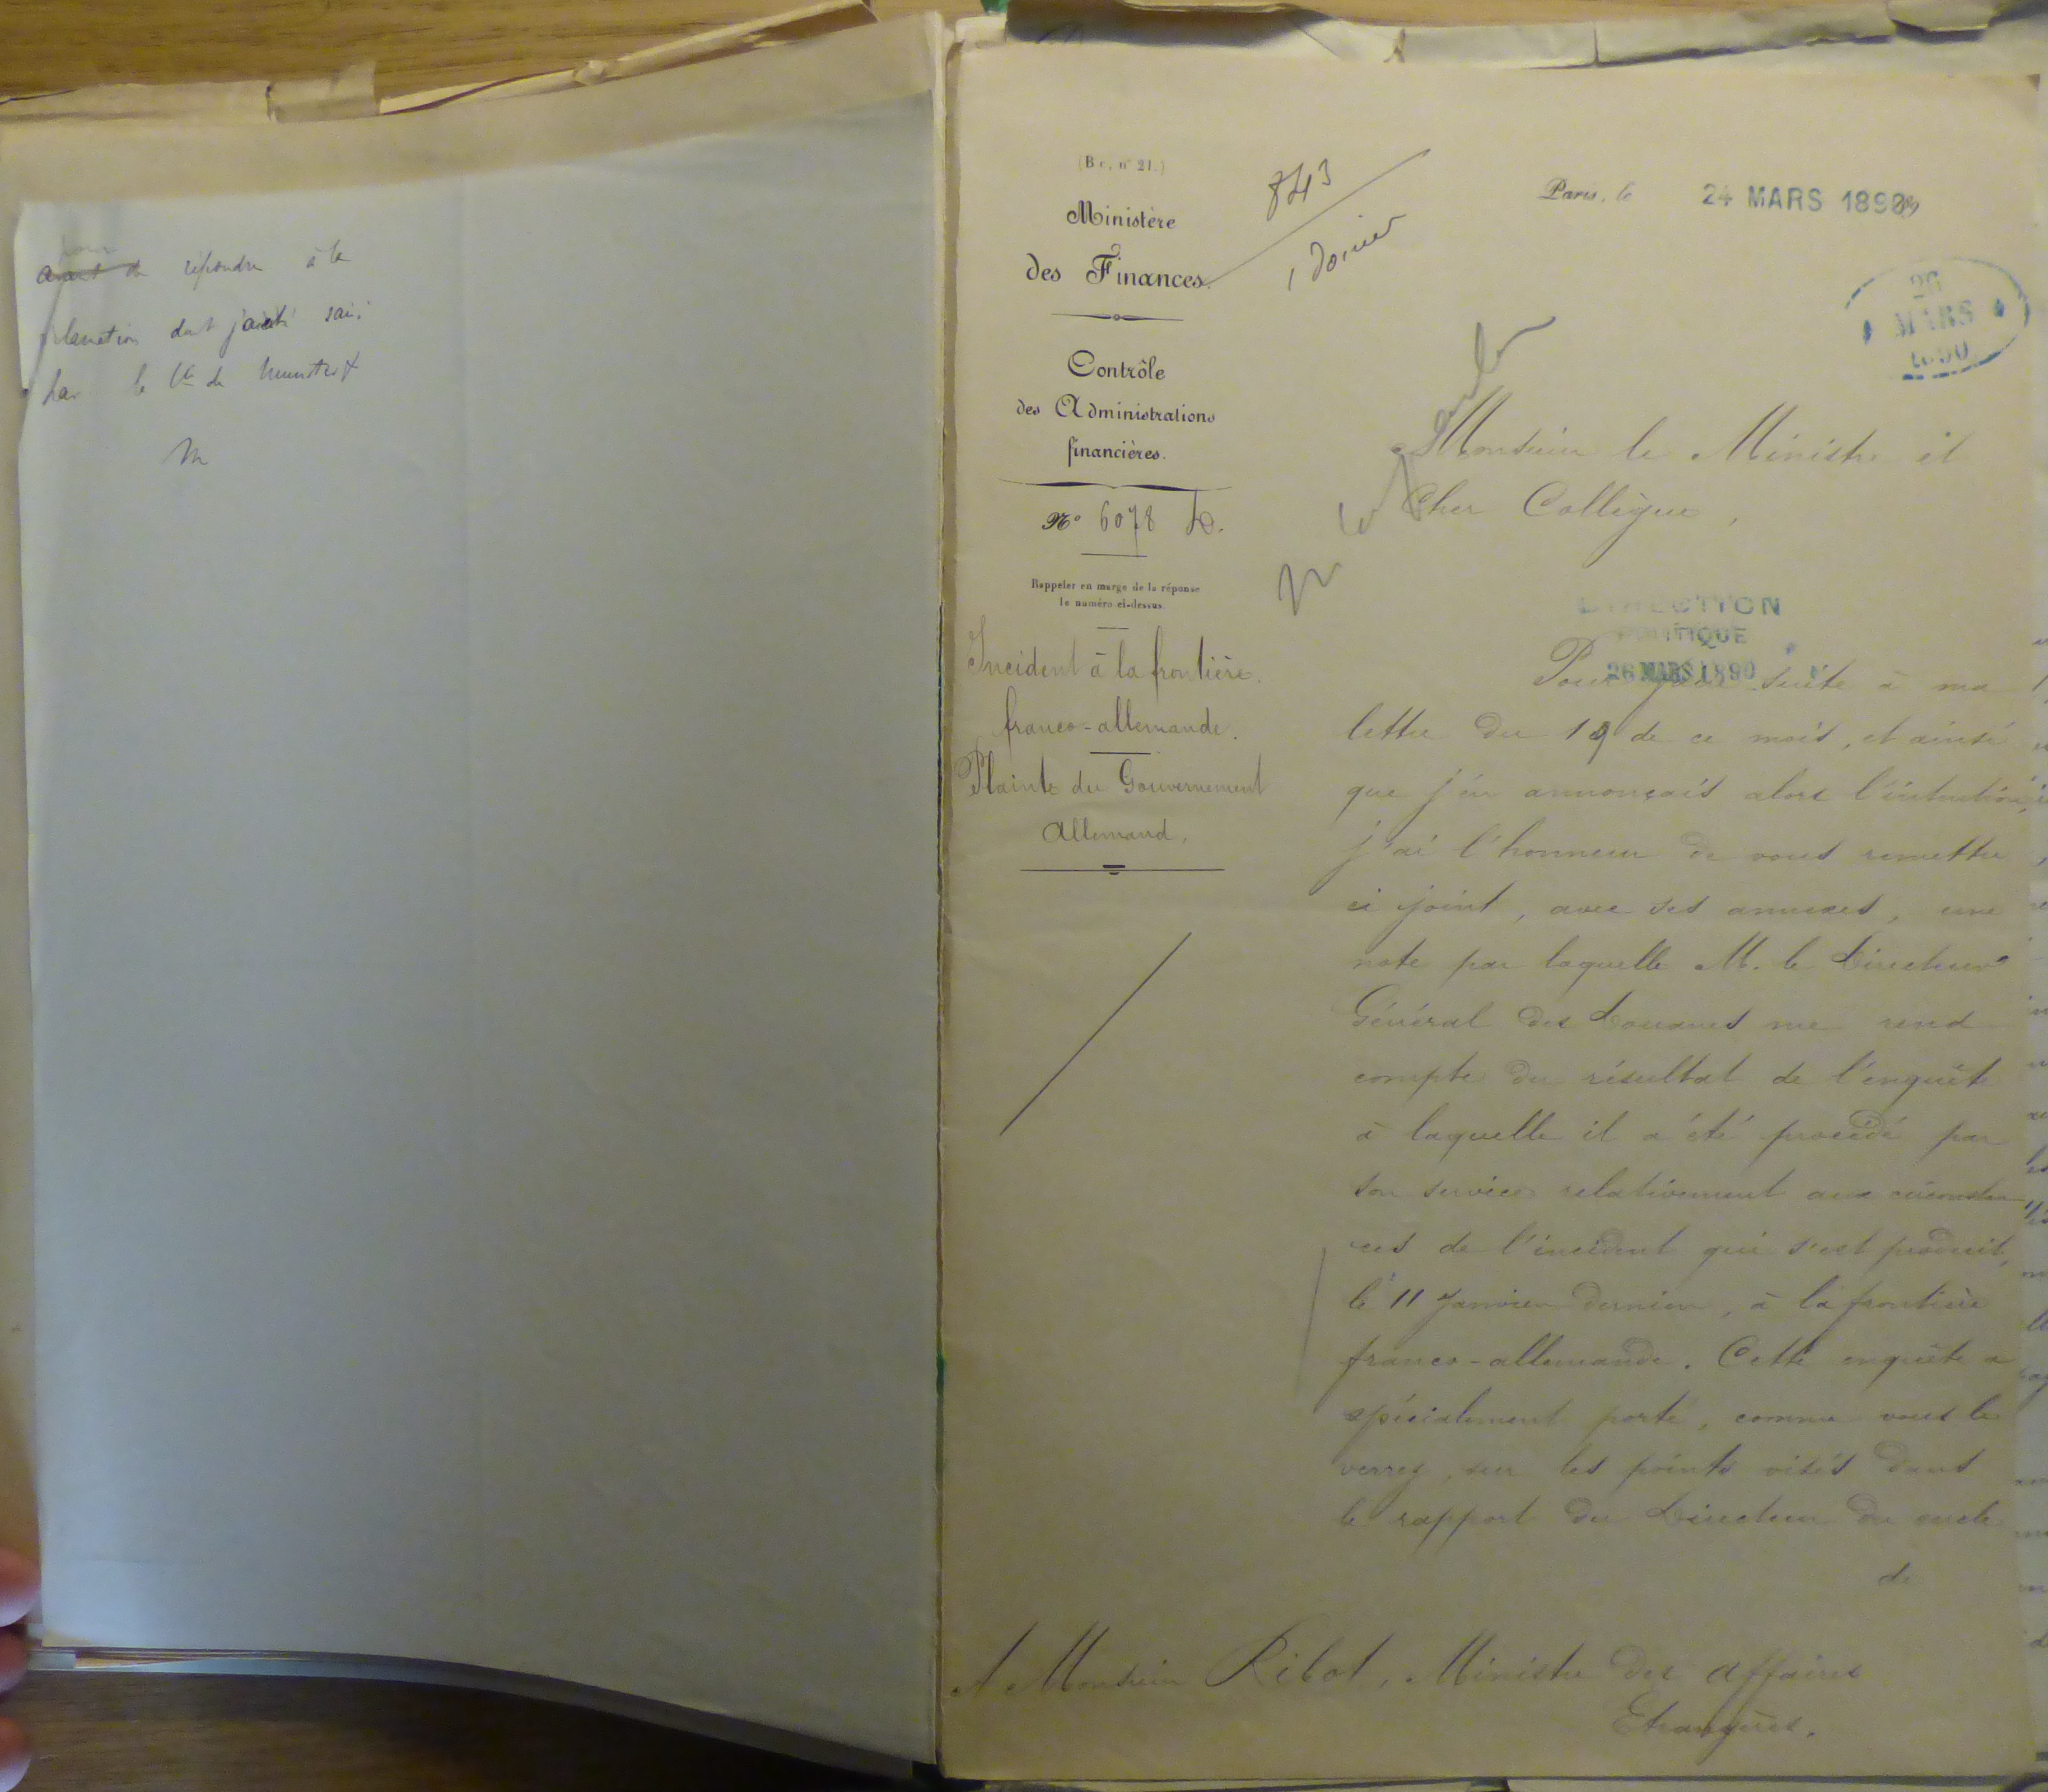 pour
avant de répondre à la
réclamation dont j'ai été saisi
par le Cte de Munster
(Bc, n° 21.)
Ministère
des Finances.
Contrôle
des Administrations
financières.
N° 6078
Rappeler en marge de la réponse
le numéro ci-dessus.
Incident à la frontière
franco-allemande.
Plainte du Gouvernement
Allemand.
843
1 dossier
Paris, le 24 MARS 1890
26
MARS
1890
Monsieur le Ministre et
Cher Collègue,
DIRECTION
POLITIQUE
26 MARS 1890
Pour faire suite à ma
lettre du 19 de ce mois, et ainsi
que j'en annonçais alors l'intention,
j'ai l'honneur de vous remettre
ci joint, avec ses annexes, une
note par laquelle M. le Directeur
Général des Douanes me rend
compte du résultat de l'enquête
à laquelle il a été procédé par
son service relativement aux circonstan
ces de l'incident qui s'est produit,
le 11 Janvier dernier, à la frontière
franco-allemande. Cette enquête a
spécialement porté, comme vous le
verrez, sur les points visés dans
le rapport du Directeur du cercle
de
A Monsieur Ribot, Ministre des Affaires
Etrangères.